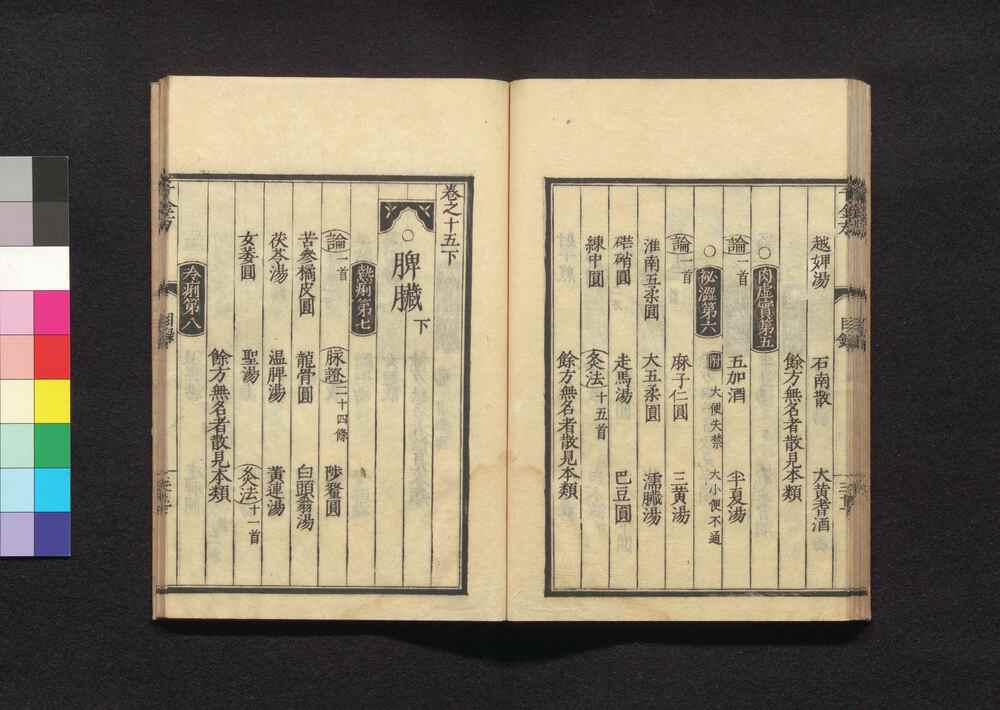 越婢湯　石南散　大黄耆酒
餘方無名者散見本類
○肉虛實第五
論一首　五加酒　半夏湯
○祕澀第六　附　大便失禁　大小便不通
論一首　麻子仁圓　三黄湯
淮南五柔圓　大五柔圓　濡臟湯
硝圓　走馬湯　巴豆圓
練中圓　灸法十五首
餘方無名者散見本類
卷之十五下
○脾臟下
熱痢第七
論一首　脉證二十四條　陟釐圓
苦參橘皮圓　龍骨圓　白頭翁湯
茯苓湯　温脾湯　黄連湯
女萎圓　聖湯　灸法十一首
餘方無名者散見本類
冷痢第八